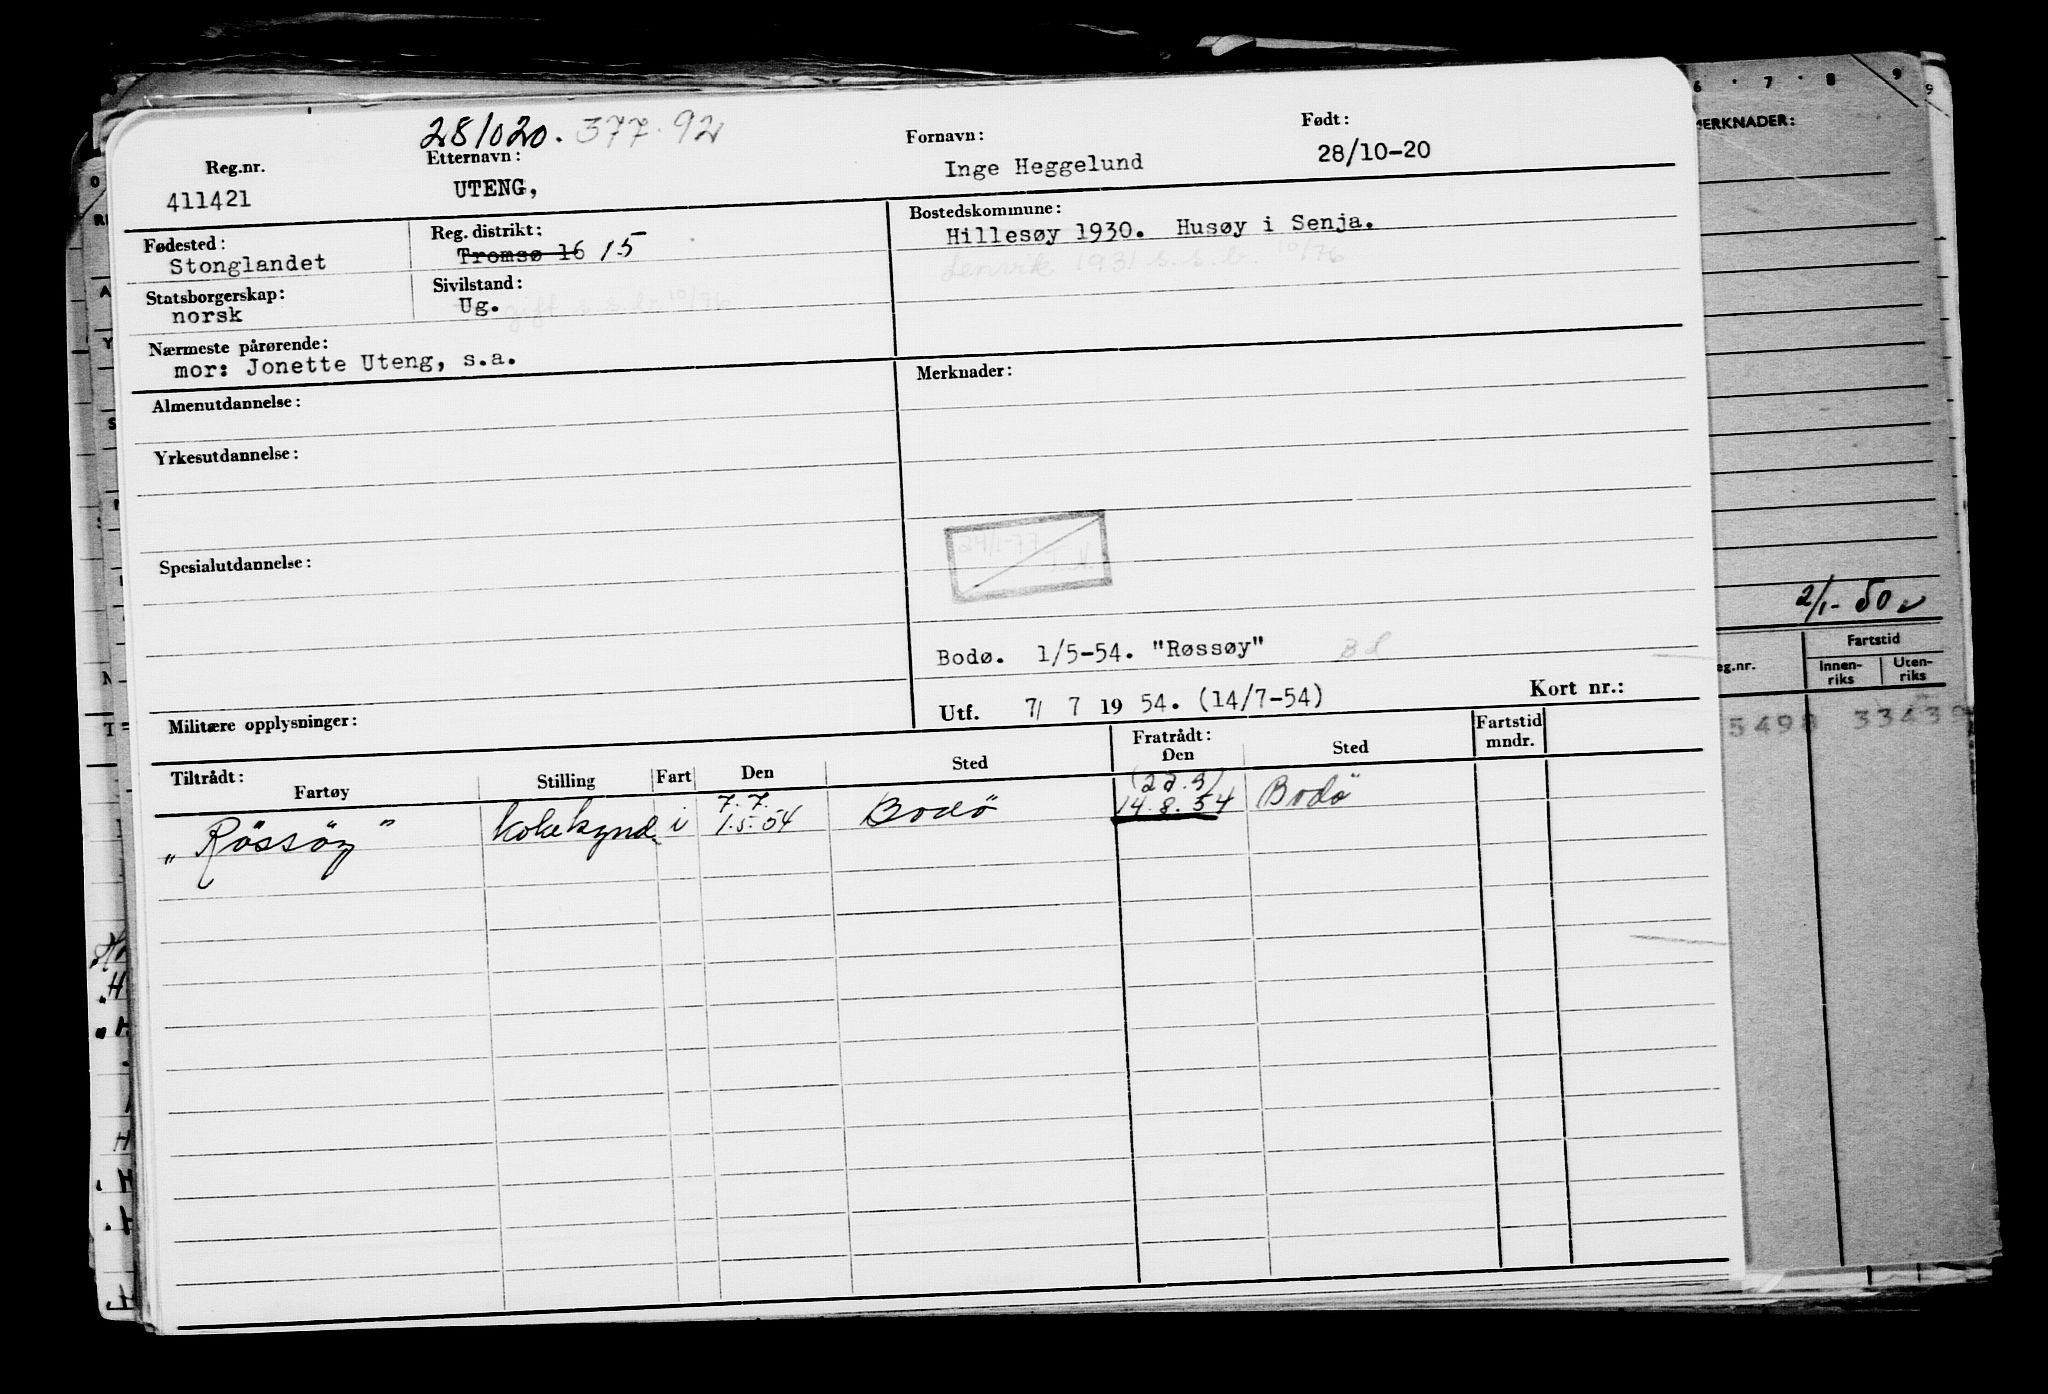 281020. 377.92
Reg.nr. Etternavn: Fornavn: Født:
411421 UTENG, Inge Heggelund 28/10-20
Fødested: Reg. distrikt: Bostedskommune:
Stonglandet Tromsø 16 15 Hillesøy 1930. Husøy i Senja.
Lenvik 1931 s.s.b. 10/76
Statsborgerskap: Sivilstand:
norsk Ug. gift s.s.b. 10/76
Nærmeste pårørende:
mor: Jonette Uteng, s.a.
Almenutdannelse: Merknader:
Yrkesutdannelse:
24/1-77
Spesialutdannelse:
Bodø. 1/5-54. "Røssøy"
Militære opplysninger: Utf. 7/ 7 19 54. (14/7-54) Kort nr.:
Tiltrådt: Fratrådt: Fartstid
Fartøy Stilling Fart Den Sted Den Sted mndr.
7.7. (22.9)
"Rössöy" i 1.5.54 Bodö 14.8.54 Bodö
6 7 8 9
MERKNADER:
2/1-50
Fartstid
eg.nr. Innen-riks Uten-riks
5498 33439